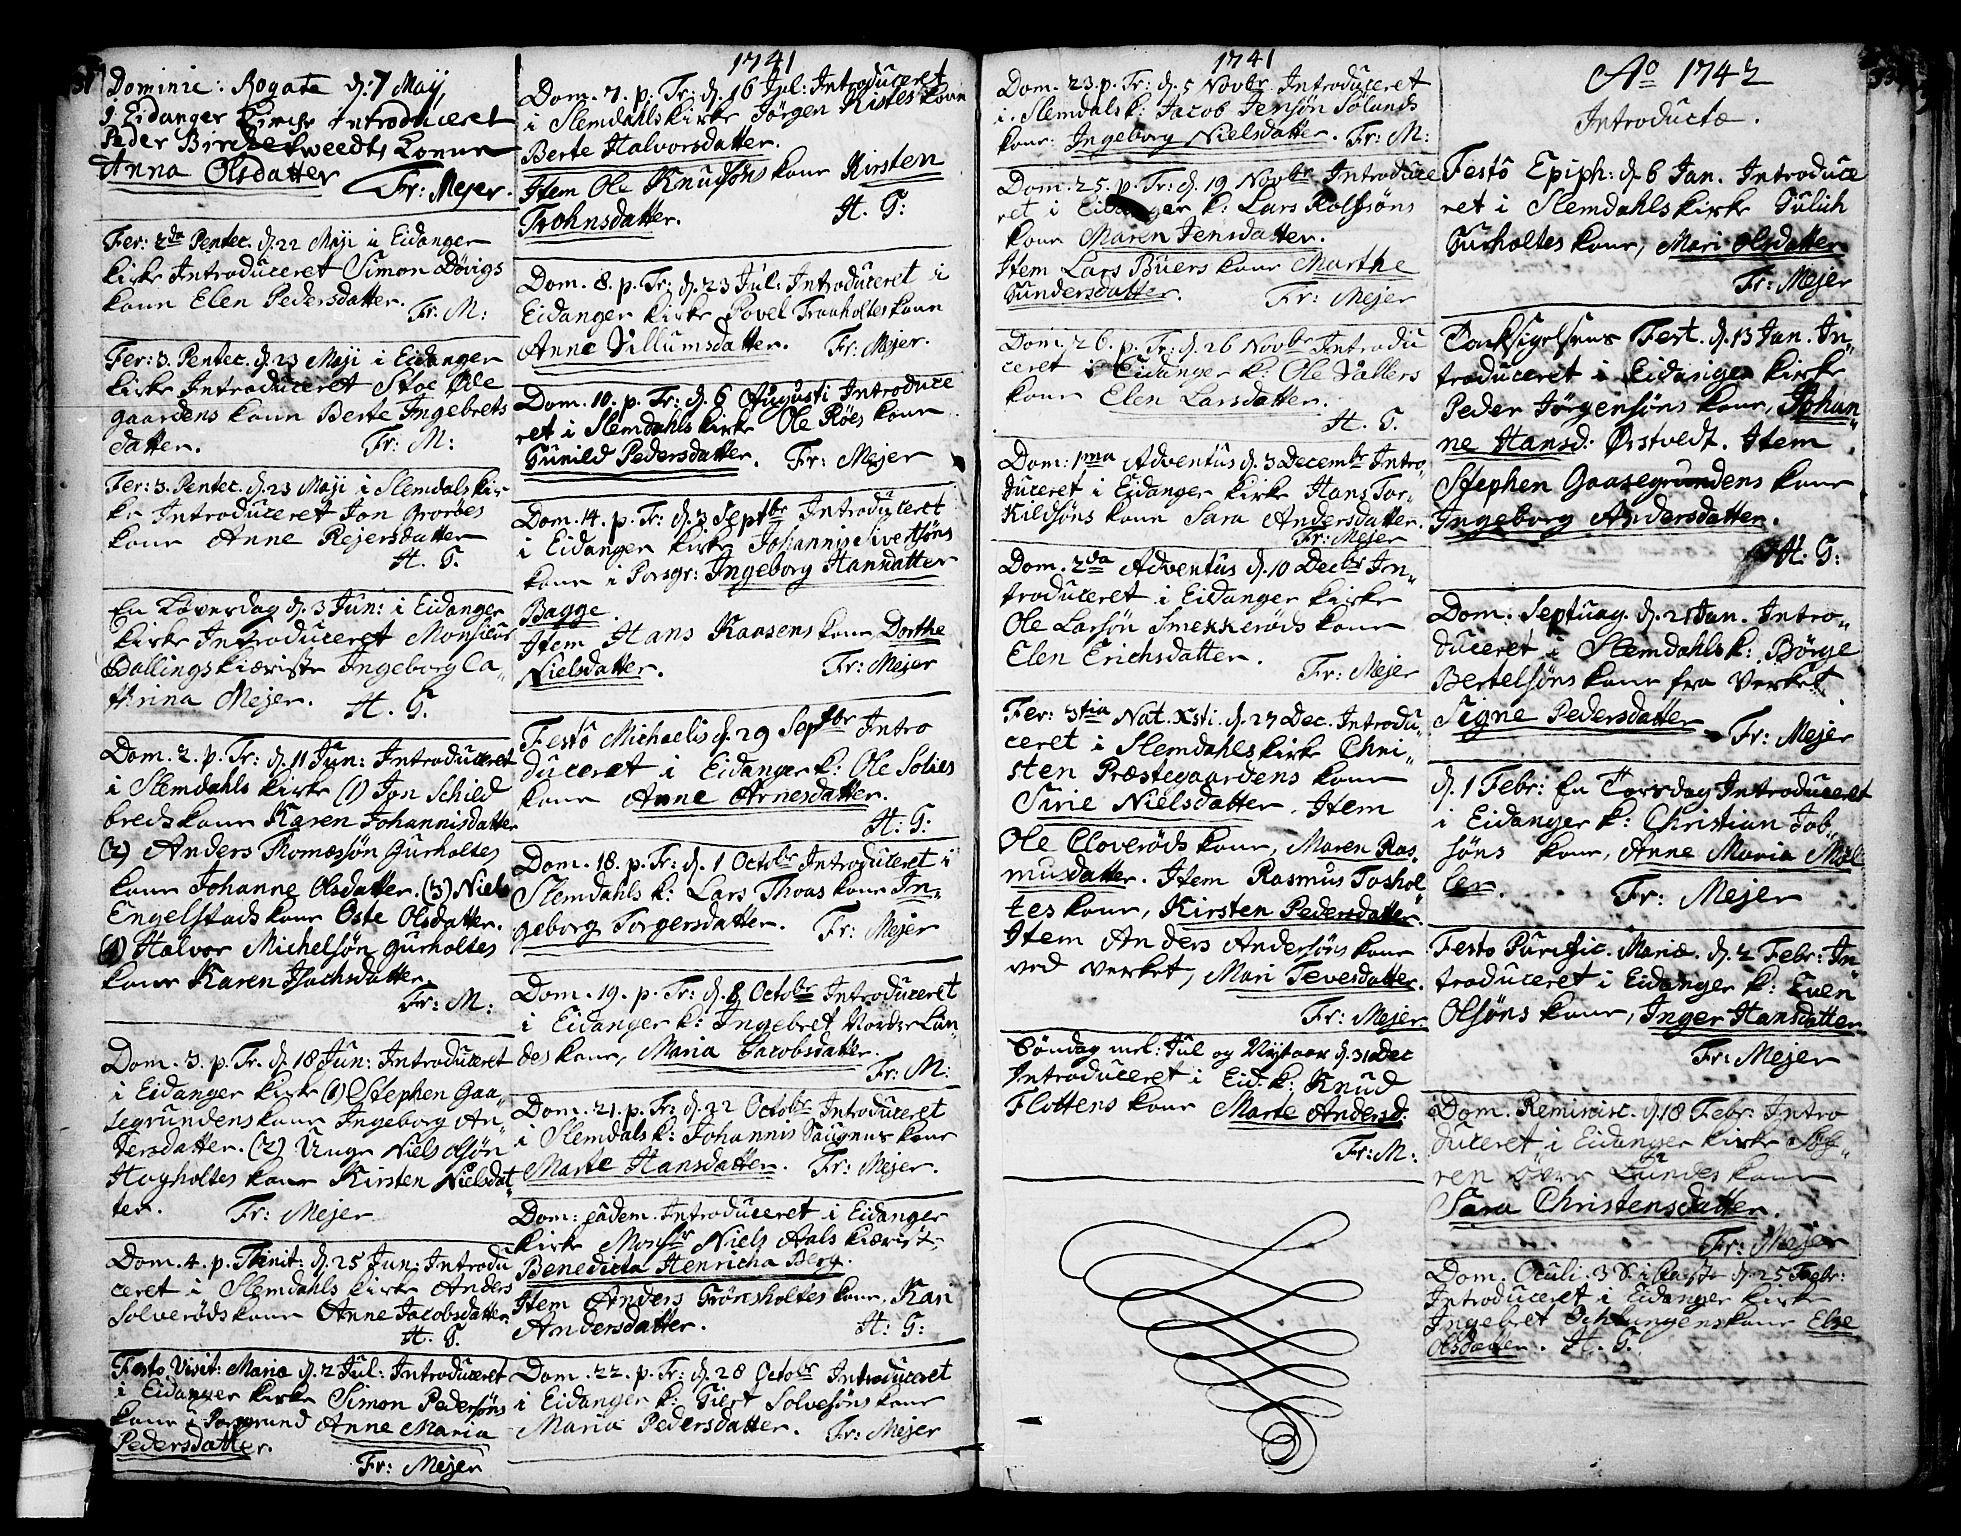 Dominic: Rogate d. 7 Maij,
i Eidanger Kirche introduceret
Peder Birche tweedts Konne
Anna Olsdatter
Fr: Mejer.
Fer: 2da Pentec. d. 22 Maji i Eidanger
kirke Introduceret Simon Døvigs
kone Elen Pedersdatter.
Fr: M:
Fer: 3. Pentec. d. 23 Maji i Eidanger
kirke Introduceret Stoe Øde
gaardens kone Berte Ingebrets
datter.
Fr: M:
Fer: 3. Pentec. d. 23 Maji i Slemdals kir
ke Introduceret Jon Grorbes
kone Anne Rejersdatter
H. G.
En Løverdag d. 3 Jun: i Eidanger
kirke Introduceret Monsieur
Ballings kiæriste Ingeborg Ca-
thrina Mejer. H. G.
Dom. 2. p. Tr: d. 11 Jun: Introduceret
i Slemdahls kirke (1) Jon Schild
breds kone Karen Johannisdatter
(2) Anders Thomesøn Gurholtes
kone Johanne Olsdatter. (3) Niels
Engelstads kone Oste Olsdatter.
(4) Halvor Michelsøn gurholtes
kone Karen Isachsdatter.
Fr: M:
Dom. 3. p. Tr. d. 18 Jun: Introduceret
i Eidanger kirke (1) Stephen Gaa-
segrundens kone Ingeborg An-
dersdatter. (2) Unge Niels Olsøn
Hogholtes kone Kirsten Nielsdat
ter. Fr: Mejer
Dom. 4. p. Trinit: d. 25 Jun: Introdu
ceret i Slemdahls kirke Anders
Solverøds kone Anne Jacobsdatter
H. G.
Festo Visit: Mariæ d. 2 Jul: Introduceret
i Eidanger kirke Simon Pedersøns
kone i Porsgrund Anne Maria
Pedersdatter.
Fr: Mejer
1741
Dom. 7. p. Tr: d. 16 Jul: Introduceret
i Slemdahls kirke Jørgen Kistes kone
Berte Halvorsdatter.
Item Ole Knudsøns kone Kirsten
Trohnsdatter.
H. G:
Dom. 8. p. Tr: d. 23 Jul: Introduceret i
Eidanger kirke Povel Traaholtes kone
Anne Villumsdatter. Fr: Mejer.
Dom. 10. p. Tr: d. 6 Augusti Introduce
ret i Slemdahls kirke Ole Røes kone
Gunild Pedersdatter. Fr: Mejer
Dom. 14. p. Tr: d. 3 Septbr Introduceret
i Eidanger kirke Johannis Sivertsøns
kone i Porsgr: Ingeborg Hansdatter
Bagge
Item Hans Kaasens kone Dorthe
Nielsdatter.
Fr: Mejer
Festo Michaelis d. 29 Septbr Intro
duceret i Eidanger k: Ole Solies
kone Anne Arnesdatter.
H: G:
Dom. 18. p. Tr: d. 1 Octobr Introduceret i
Slemdahls k: Lars Thoas kone In-
geborg Torgersdatter. Fr: Mejer
Dom. 19. p. Tr: d. 8 Octobr Introduceret
i Eidanger k: Ingebret Nordre Lun-
des kone, Maria Jacobsdatter.
Fr: M:
Dom. 21. p. Tr: d. 22 Octobr Introduceret
i Slemdals k: Johannis Saugnes kone
Marte Hansdatter. Fr: Mejer.
Dom: eadem. Introduceret i Eidanger
kirke Monsr Niels Aals kiæriste
Benedicta Henricha Berg.
Item Anders Grønsholtes kone, Kari
Andersdatter. H: G:
Dom. 22. p. Tr: d. 28 Octobr Introduceret
i Eidanger k: Giert Solvesøns kone
Maria Pedersdatter. Fr: Mejer
1741
Dom. 23. p. Tr: d. 5 Novbr Introduceret
i Slemdals k: Jacob Jensøn Sølands
kone: Ingeborg Nielsdatter. Fr: M:
Dom. 25. p. Tr: d. 19 Novbr Introduce
ret i Eidanger k: Lars Rolfsøns
kone Maren Jensdatter.
Item Lars Buers kone Marthe
Gundersdatter. Fr: Mejer
Dom. 26. p. Tr: d. 26 Novbr Introdu
ceret i Eidanger k: Ole Vallers
kone Elen Larsdatter.
H. G.
Dom: 1ma Adventus d. 3 Decembr Intro-
duceret i Eidanger kirke Hans Tor-
kildsøns kone Sara Andersdatter.
Fr: Mejer
Dom. 2da Adventus d. 10 Decbr In-
troduceret i Eidanger kirke
Ole Larsøn Smekkerøds kone
Elen Erichsdatter.
Fr: Mejer
Fer: 3tia Nat. Xsti. d. 27 Dec. Introdu-
ceret i Slemdahls kirke Chri-
sten Præstegaardens kone
Sirie Nielsdatter. Item
Ole Cloverøds kone, Maren Ras-
musdatter. Item Rasmus Toshol
tes kone, Kirsten Pedersdatter.
Item Anders Andersøns kone
ved verket, Mari Tevesdatter.
Fr: Mejer
Søndag mel: Jul og Nytaar d. 31 Dec
Introduceret i Eid. k: Knud
Flottens kone Marte Andersd:
Fr: M:
Ao 1742
Introductæ.
Festo Epiph: d. 6 Jan. Introduce
ret i Slemdahls kirke Gulich
Gurholtes kone, Mari Olsdatter
Fr: Mejer
Taksigelsens Fest. d. 13 Jan. In-
troduceret i Eidanger kirke
Peder Jørgensøns kone, Johan-
ne Hansd: Ørstvedt. Item
Stephen Gaasegrundens kone
Ingeborg Andersdatter.
H: G:
Dom: Septuag. d. 21 Jan. Intro-
duceret i Slemdahls k: Børge
Bertelsøns kone fra verket
Signe Pedersdatter
Fr: Mejer
d. 1 Febr: En Torsdag Introduceret
i Eidanger k: Christian Job-
søns kone, Anne Maria Møl
ler. Fr: Mejer
Festo Purific. Mariæ. d. 2 Febr: In-
troduceret i Eidanger k: Even
Olsøns kone, Inger Hansdatter
Fr: Mejer
Dom. Reminisc. d. 18 Febr: Intro
duceret i Eidanger kirke Sør-
ren Øvre Lundes kone
Sara Christensdatter.
Fr: Mejer
Dom. Oculi. 3 S. i Faste d. 25 Febr:
Introduceret i Eidanger kirke
Ingebret Ochlungens kone Else
Olsdatter. H. G.